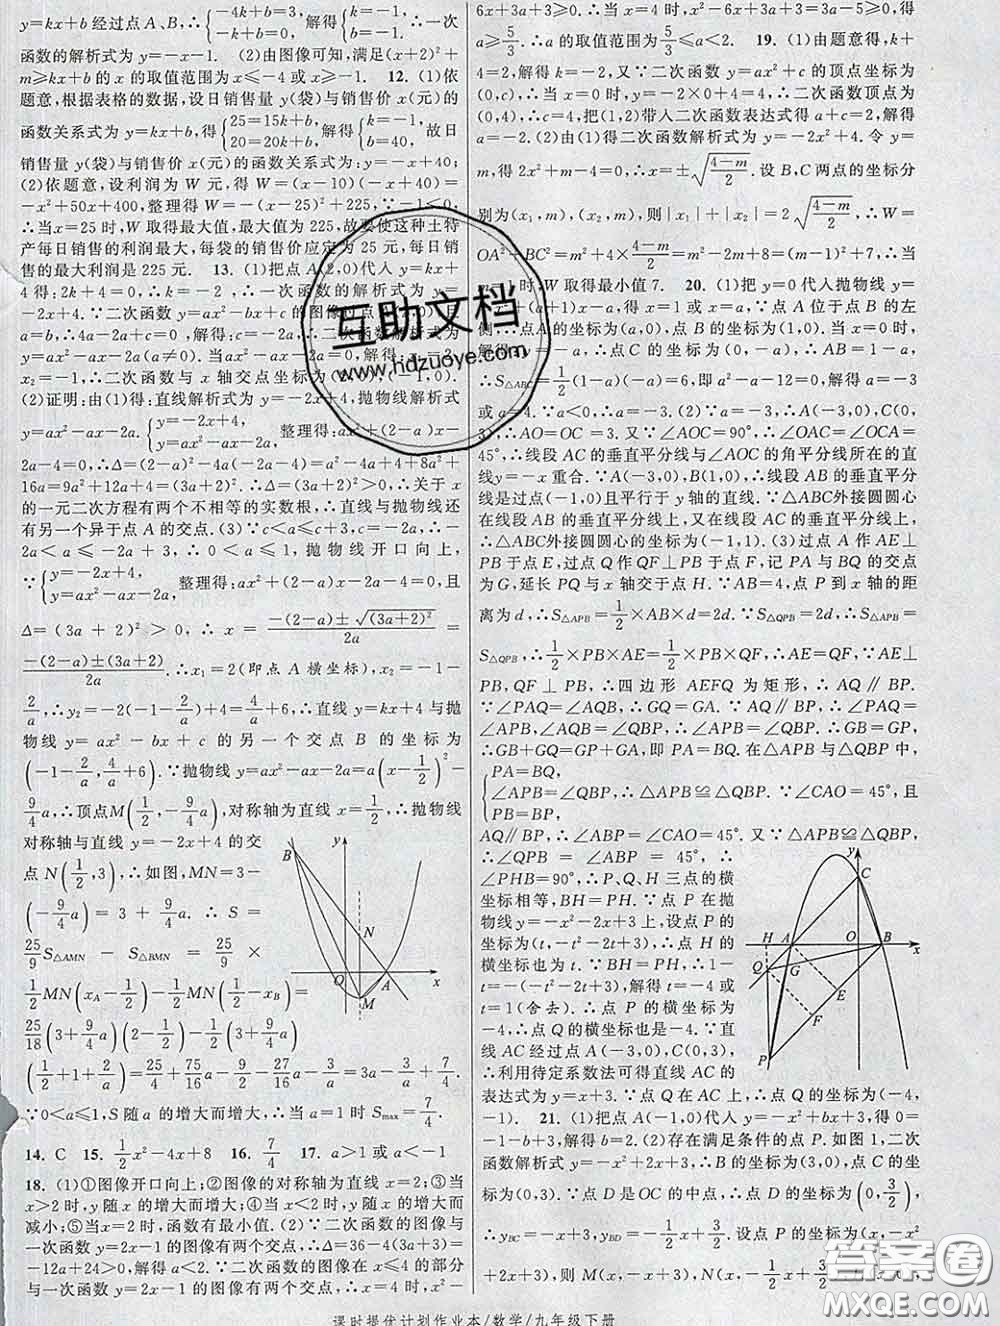 y=kx+b经过点A、B,∴{-4k+b=3, -k+b=0, 解得{k=-1, b=-1, ∴一次
函数的解析式为y=-x-1. (2)由图像可知,满足(x+2)²+
m≥kx+b的x的取值范围为x≤-4或x≥-1. 12. (1)依
题意,根据表格的数据,设日销售量y(袋)与销售价x(元)的
函数关系式为y=kx+b,得{25=15k+b, 20=20k+b, 解得{k=-1, b=40, 故日
销售量y(袋)与销售价x(元)的函数关系式为:y=-x+40;
(2)依题意,设利润为W元,得W=(x-10)(-x+40)=
-x²+50x+400,整理得W=-(x-25)²+225,∵-1<0,
∴当x=25时,W取得最大值,最大值为225,故要使这种土特
产每日销售的利润最大,每袋的销售价应定为25元,每日销
售的最大利润是225元. 13. (1)把点A(2,0)代入y=kx+
4得:2k+4=0,∴k=-2,∴一次函数的解析式为y=
(2)证明:由(1)得:直线解析式为y=-2x+4,抛物线解析式
为y=ax²-ax-2a. {y=-2x+4, y=ax²-ax-2a, 整理得:ax²+(2-a)x-
2a-4=0,∴Δ=(2-a)²-4a(-2a-4)=a²-4a+4+8a²+
16a=9a²+12a+4=(3a+2)². ∴Δ=(3a+2)²>0,∴关于x
的一元二次方程有两个不相等的实数根,∴直线与抛物线还
有另一个异于点A的交点. (3)∵<a≤c+3,c=-2a,∴-2a
<a≤-2a+3,∴0<a≤1,抛物线开口向上,
∵{y=-2x+4, y=ax²-ax-2a, 整理得:ax²+(2-a)x-2a-4=0,且
Δ=(3a+2)²>0,∴x=(-(2-a)±√(3a+2)²)/2a=
(-(2-a)±(3a+2))/2a. ∴x₁=2(即点A横坐标),x₂=-1-
2/a,∴y₂=-2(-1-2/a)+4=4/a+6,∴直线y=kx+4与抛
物线y=ax²-bx+c的另一个交点B的坐标为
(-1-2/a,4/a+6). ∵抛物线y=ax²-ax-2a=a(x-1/2)²-
9/4a,∴顶点M(1/2,-9/4a),对称轴为直线x=1/2,∴抛物线
对称轴与直线y=-2x+4的交
点N(1/2,3),∴如图,MN=3-
(-9/4a)=3+9/4a. ∴S=
25/9S△AMN-S△BMN=25/9×
1/2MN(xA-1/2)-1/2MN(1/2-xB)=
25/18(3+9/4a)(2-1/2)-1/2(3+9/4a)
(1/2+1+2/a)=25/4+75/16a-9/4-27/16a-3/a=3a-3/a+7/4.
∵0<a≤1,S随a的增大而增大,∴当a=1时Smax=7/4.
14. C 15. 1/2x²-4x+8 16. 7/4 17. a>1或a<-1
18. (1)①图像开口向上;②图像的对称轴为直线x=2;③当
x>2时,y随x的增大而增大;④当x<2时,y随x的增大而
减小;⑤当x=2时,函数有最小值. (2)∵二次函数的图像与
一次函数y=2x-1的图像有两个交点,∴Δ=36-4(3a+3)=
-12a+24>0,解得a<2. ∵二次函数的图像在x≤4的部分
与一次函数y=2x-1的图像有两个交点,∴x=4时,x²-
B y N Q A x M
6x+3a+3≥0. ∴当x=4时,x²-6x+3a+3=3a-5≥0,得
a≥5/3. ∴a的取值范围为5/3≤a<2. 19. (1)由题意得,k+
4=2,解得k=-2,又∵二次函数y=ax²+c的顶点坐标为
(0,c),∴当x=0时,y=-2×0+4=4,∴二次函数顶点为
(0,4),∴c=4,把(1,2)带入二次函数表达式得a+c=2,解得
a=-2. (2)由(1)得二次函数解析式为y=-2x²+4. 令y
=m,得2x²+m-4=0,∴x=±√((4-m)/2). 设B,C两点的坐标分
别为(x₁,m),(x₂,m),则|x₁|+|x₂|=2√((4-m)/2),∴W=
OA²+BC²=m²+4×(4-m)/2=m²-2m+8=(m-1)²+7. ∴当
时,W取得最小值7. 20. (1)把y=0代入抛物线y=
+(a+1)x-a,得x=1或x=a. ∵点A位于点B的左
侧,∴点A的坐标为(a,0),点B的坐标为(1,0). 当x=0时,
y=-a,∴点C的坐标为(0,-a),∴AB=1-a,
∴S△ABC=1/2(1-a)(-a)=6,即a²-a-12=0,解得a=-3
或a=4. ∵a<0,∴a=-3. (2)∵a=-3,∴A(-3,0),C(0,
3),∴AO=OC=3. ∵∠AOC=90°,∴∠OAC=∠OCA=
45°,∴线段AC的垂直平分线与∠AOC的角平分线所在的直
线y=-x重合. ∵A(-3,0),B(1,0),∴线段AB的垂直平分
线是过点(-1,0)且平行于y轴的直线. ∵△ABC外接圆圆心
在线段AB的垂直平分线上,又在线段AC的垂直平分线上,
∴△ABC外接圆圆心的坐标为(-1,1). (3)过点A作AE⊥
PB于点E,过点Q作QF⊥PB于点F,记PA与BQ的交点
为G,延长PQ与x轴交于点H. ∵AB=4,点P到x轴的距
离为d,∴S△APB=1/2×AB×d=2d. ∵S△QPB=2d,∴S△APB=
S△QPB,∴1/2×PB×AE=1/2×PB×QF,∴AE=QF. ∵AE⊥
PB,QF⊥PB,∴四边形AEFQ为矩形,∴AQ∥BP.
∵∠PAQ=∠AQB,∴GQ=GA. ∵AQ∥BP,∴∠PAQ=
∠APB,∠AQB=∠QBP,∴∠APB=∠QBP,∴GB=GP,
∴GB+GQ=GP+GA,即PA=BQ. 在△APB与△QBP中,
{PA=BQ, ∠APB=∠QBP, PB=BP, ∴△APB≌△QBP. ∵∠CAO=45°,且
AQ∥BP,∴∠ABP=∠CAO=45°. 又∵△APB≌△QBP,
∴∠QPB=∠ABP=45°,∴
∠PHB=90°,∴P、Q、H三点的横
坐标相等,BH=PH. ∵点P在抛
物线y=-x²-2x+3上,设点P的
坐标为(t,-t²-2t+3),∴点H的
横坐标也为t. ∵BH=PH,∴1-
t=-(-t²-2t+3),解得t=-4或
t=1(舍去). ∴点P的横坐标为
-4,∴点Q的横坐标也是-4. ∵直
线AC经过点A(-3,0),C(0,3),
∴利用待定系数法可得直线AC的
表达式为y=x+3. ∵点Q在AC上,∴点Q的坐标为(-4,
-1). 21. (1)把点A(-1,0)代入y=-x²+bx+3,得0=
解得b=2. (2)存在满足条件的点P. 如图1,二次
函数解析式为y=-x²+2x+3,点B的坐标为(3,0),点C的坐
标为(0,3). ∵点D是OC的中点,∴点D的坐标为(0,3/2)
∴yBC=-x+3,yBD=-1/2x+3/2. 设点P的坐标为(x,-x²
+2x+3),则M(x,-x+3),N(x,-1/2x+
y C H A O B x Q G E F P
互助文档
www.hdzuoye.com
答案圈
MXQE.COM
课时提优计划作业本/数学/九年级下册